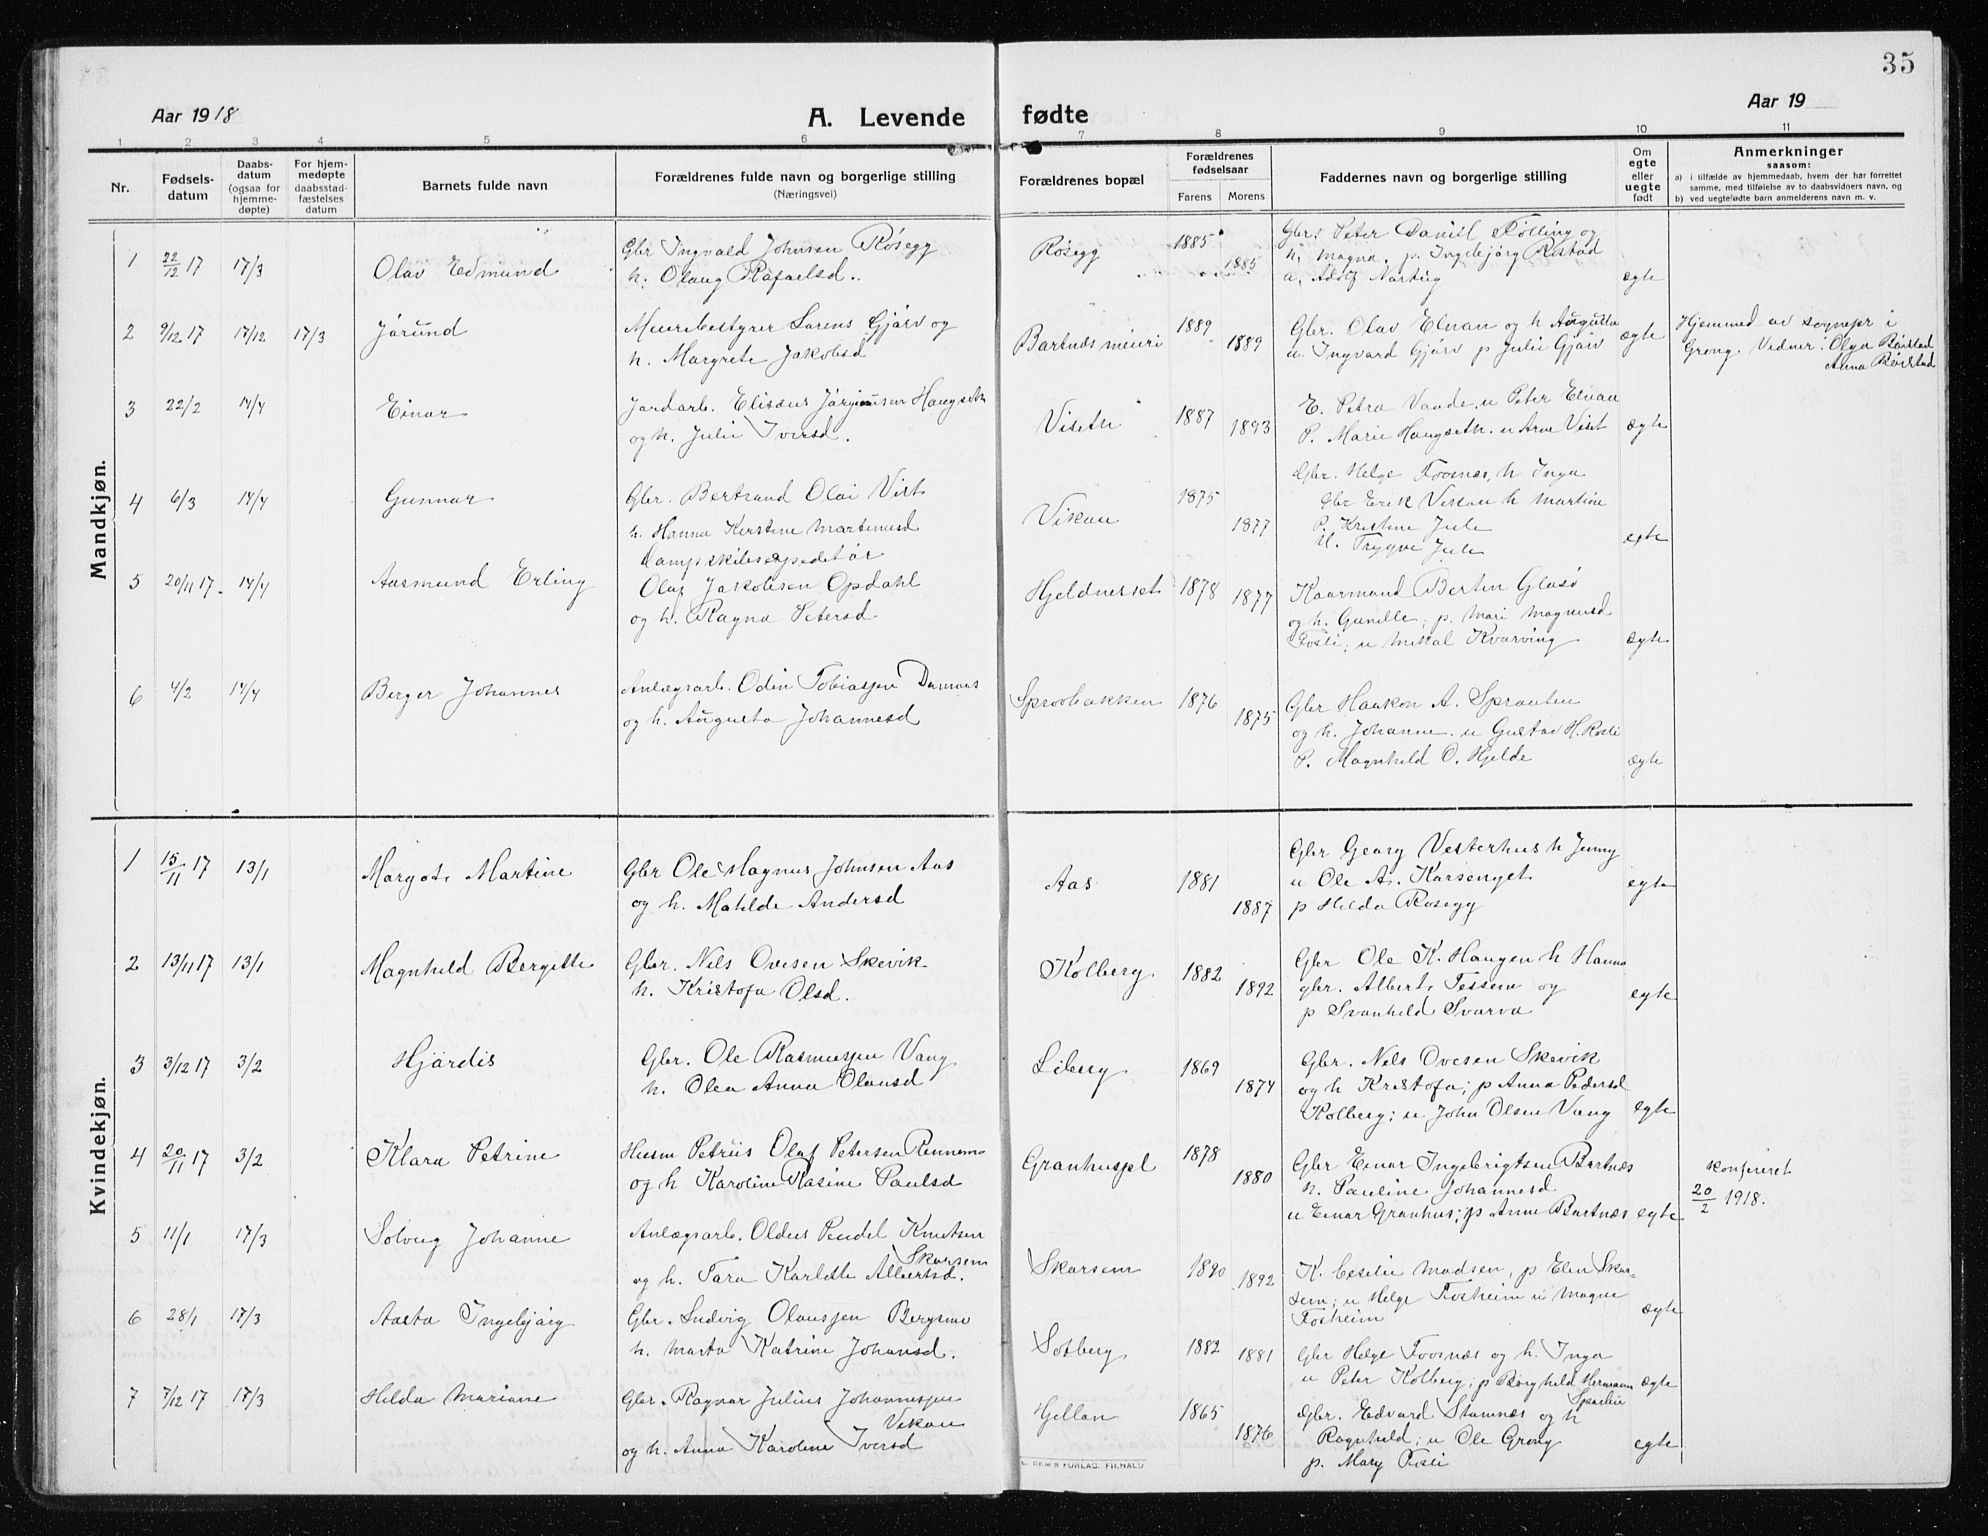 35
Aar 1918
A. Levende fødte
Aar 19
1 2 3 4 5 6 7 8 9 10 11
Nr.
Fødsels-
datum
Daabs-
datum
(ogsaa for
hjemme-
døpte)
For hjem-
medøpte
daabsstad-
fæstelses
datum
Barnets fulde navn
Forældrenes fulde navn og borgerlige stilling
(Næringsvei)
Forældrenes bopæl
Forældrenes
fødselsaar
Farens Morens
Faddernes navn og borgerlige stilling
Om
egte
eller
uegte
født
Anmerkninger
saasom:
a) i tilfælde av hjemmedaab, hvem der har forrettet
samme, med tilføielse av to daabsvidners navn, og
b) ved uegtefødte barn anmelderens navn m. v.
Mandkjøn.
1 22/12 17 17/3 Olav Edmund
Gbr Ingvald Johnsen Røsegg
h. Olaug Rafaelsd.
Røsegg 1885 1885
Gbr. Peter Daniel Følling og
h. Magna. p. Ingebjørg Ristad
u. Adolf Nortug
egte
2 9/12 17 17/12 17/3 Jørund
Meieribestyrer Lorens Gjørv og
h. Margrete Jakobsd
Bartnes mieri 1889 1889
Gbr. Olav Elnan og h Augusta
u. Ingvard Gjørv p Julie Gjørv
egte
Hjemmed av sognepr i
Grong. Vidner: Olga Børstad
Anna Børstad
3 22/2 14/4 Einar
Jordarb. Elisæus Jørginusen Haugseth
og h. Julie Iversd.
Viseth 1887 1893
E. Petra Vaade. u Peter Elnan
P. Marie Haugseth. u Arne Viset
egte
4 6/3 14/4 Gunnar
Gbr. Bertrand Olai Vist
h. Hanna Kirstine Martinusd
Vikan 1875 1877
Gbr. Helge Foosnæs, h Inga
Gbr Erik Vikan h Martine
P. Kristine Jule
U. Trygve Jule
egte
5 20/11 17. 14/4 Aasmund Erling
Dampskibsexpeditør
Olaf Jakobsen Opdahl
og h. Ragna Petersd
Hjeldnesset 1878 1877
Kaarmand Bertin Glasø
og h. Gunille; p. Mari Magnusd
Fosli; u Mikal Kvarving
ægte
6 4/2 14/4 Berger Johannes
Anlægsarb. Odin Tobiassen Damaas
og h. Augusta Johannesd
Sprovbakken 1876 1875
Gbr Haakon A. Sprauten
og h. Johanne. u Gustav H. Rosli
P. Magnhild O. Hjelde
ægte
Kvindekjøn.
1 15/11 17 13/1 Margot Martine
Gbr Ole Magnus Johnsen Aas
og h. Matilde Andersd
Aas 1881 1887
Gbr Georg Vesterhus h Jenny
u Ole A. Karsenget
p Hilda Røsegg
egte
2 13/11 17 13/1 Magnhild Bergitte
Gbr. Nils Ovesen Skevik
h. Kristofa Olsd.
Kolberg 1882 1892
Gbr Ole K. Haugen h Hanna
gbr. Albert Tessem og
p Svanhild Svarva
egte
3 3/12 17 3/2 Hjørdis
Gbr. Ole Rasmussen Vang
h. Olea Anna Olausd
Liberg 1869 1874
Gbr. Nils Ovesen Skevik
og h Kristofa; p Anna Pedersd
Kolberg; u John Olsen Vang
egte
4 20/11 17 3/2 Klara Petrine
Husm Petrus Olaf Petersen Rennemo
og h Karoline Rasine Paulsd
Granhuspl 1878 1880
Gbr Einar Ingebrigtsen Bartnes
h. Pauline Johannesd
u Einar Granhus; p Anne Bartnæs
egte
Konfireret
20/2 1918.
5 11/1 17/3 Solveig Johanne
Anlægsarb. Oldus Pendel Knutsen
Skarsem
og h. Tara Karlotte Albertsd.
Skarsem 1890 1892
K. Cesilie Madsen, p Elen Skar-
sem; u Helge Fosheim u Magne
Fosheim
ægte
6 28/1 17/3 Aasta Ingebjørg
Gbr. Ludvig Olaussen Bergsmo
h. Marta Katrine Johansd.
Solberg 1882 1881
Gbr Helge Foosnæs og h. Inga
u Peter Kolberg; p Borghild Hermann
ægte
7 7/12 17 17/3 Hilda Mariane
Gbr. Ragnar Julius Johannessen
Vikan
og h. Anna Karoline Iversd
Hjellan 1865 1876
Gbr. Edvard Stamnæs og h
Ragnhild; u Ole Grong
p. Mary Fosli
egte
FORLAG, FR.HALD